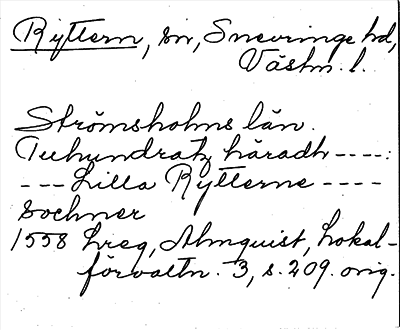 Ryttern, sn, Snevringe hd,
Västm. l.
Strömsholms län.
Tuhundratz häradh ----:
--- Lilla Rytterne ----
sochner
1558 Lreg, Almquist, Lokal-
förvaltn. 3, s. 209. orig.